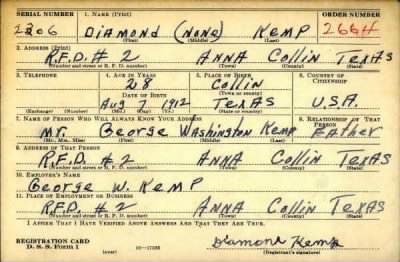 SERIAL NUMBER 1. NAME (Print) ORDER NUMBER
2306 DIAMOND (NONE) KEMP 2664
(First) (Middle) (Last)
2. ADDRESS (Print)
R.F.D. # 2 ANNA COLLIN TEXAS
(Number and street or R. F. D. number) (Town) (County) (State)
3. TELEPHONE 4. AGE IN YEARS 5. PLACE OF BIRTH 6. COUNTRY OF CITIZENSHIP
28 Collin
DATE OF BIRTH (Town or county)
Aug 7 1912 TEXAS U.S.A.
(Exchange) (Number) (Mo.) (Day) (Yr.) (State or country)
7. NAME OF PERSON WHO WILL ALWAYS KNOW YOUR ADDRESS 8. RELATIONSHIP OF THAT PERSON
Mr. George Washington Kemp Father
(Mr., Mrs., Miss) (First) (Middle) (Last)
9. ADDRESS OF THAT PERSON
R.F.D. # 2 ANNA Collin TEXAS
(Number and street or R. F. D. number) (Town) (County) (State)
10. EMPLOYER'S NAME
George W. KEMP
11. PLACE OF EMPLOYMENT OR BUSINESS
R.F.D. # 2 ANNA Collin TEXAS
(Number and street or R. F. D. number) (Town) (County) (State)
I AFFIRM THAT I HAVE VERIFIED ABOVE ANSWERS AND THAT THEY ARE TRUE.
REGISTRATION CARD
D. S. S. Form 1 (over) Diamond Kemp
(Registrant's signature)